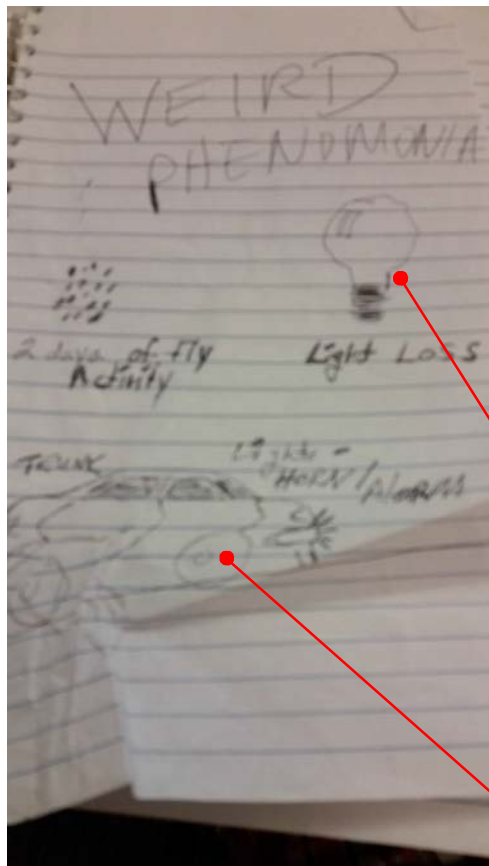 WEIRD
PHENOMONIA
2 days of fly
Activity
Light Loss
TRUNK
Lights -
HORN/Alarm